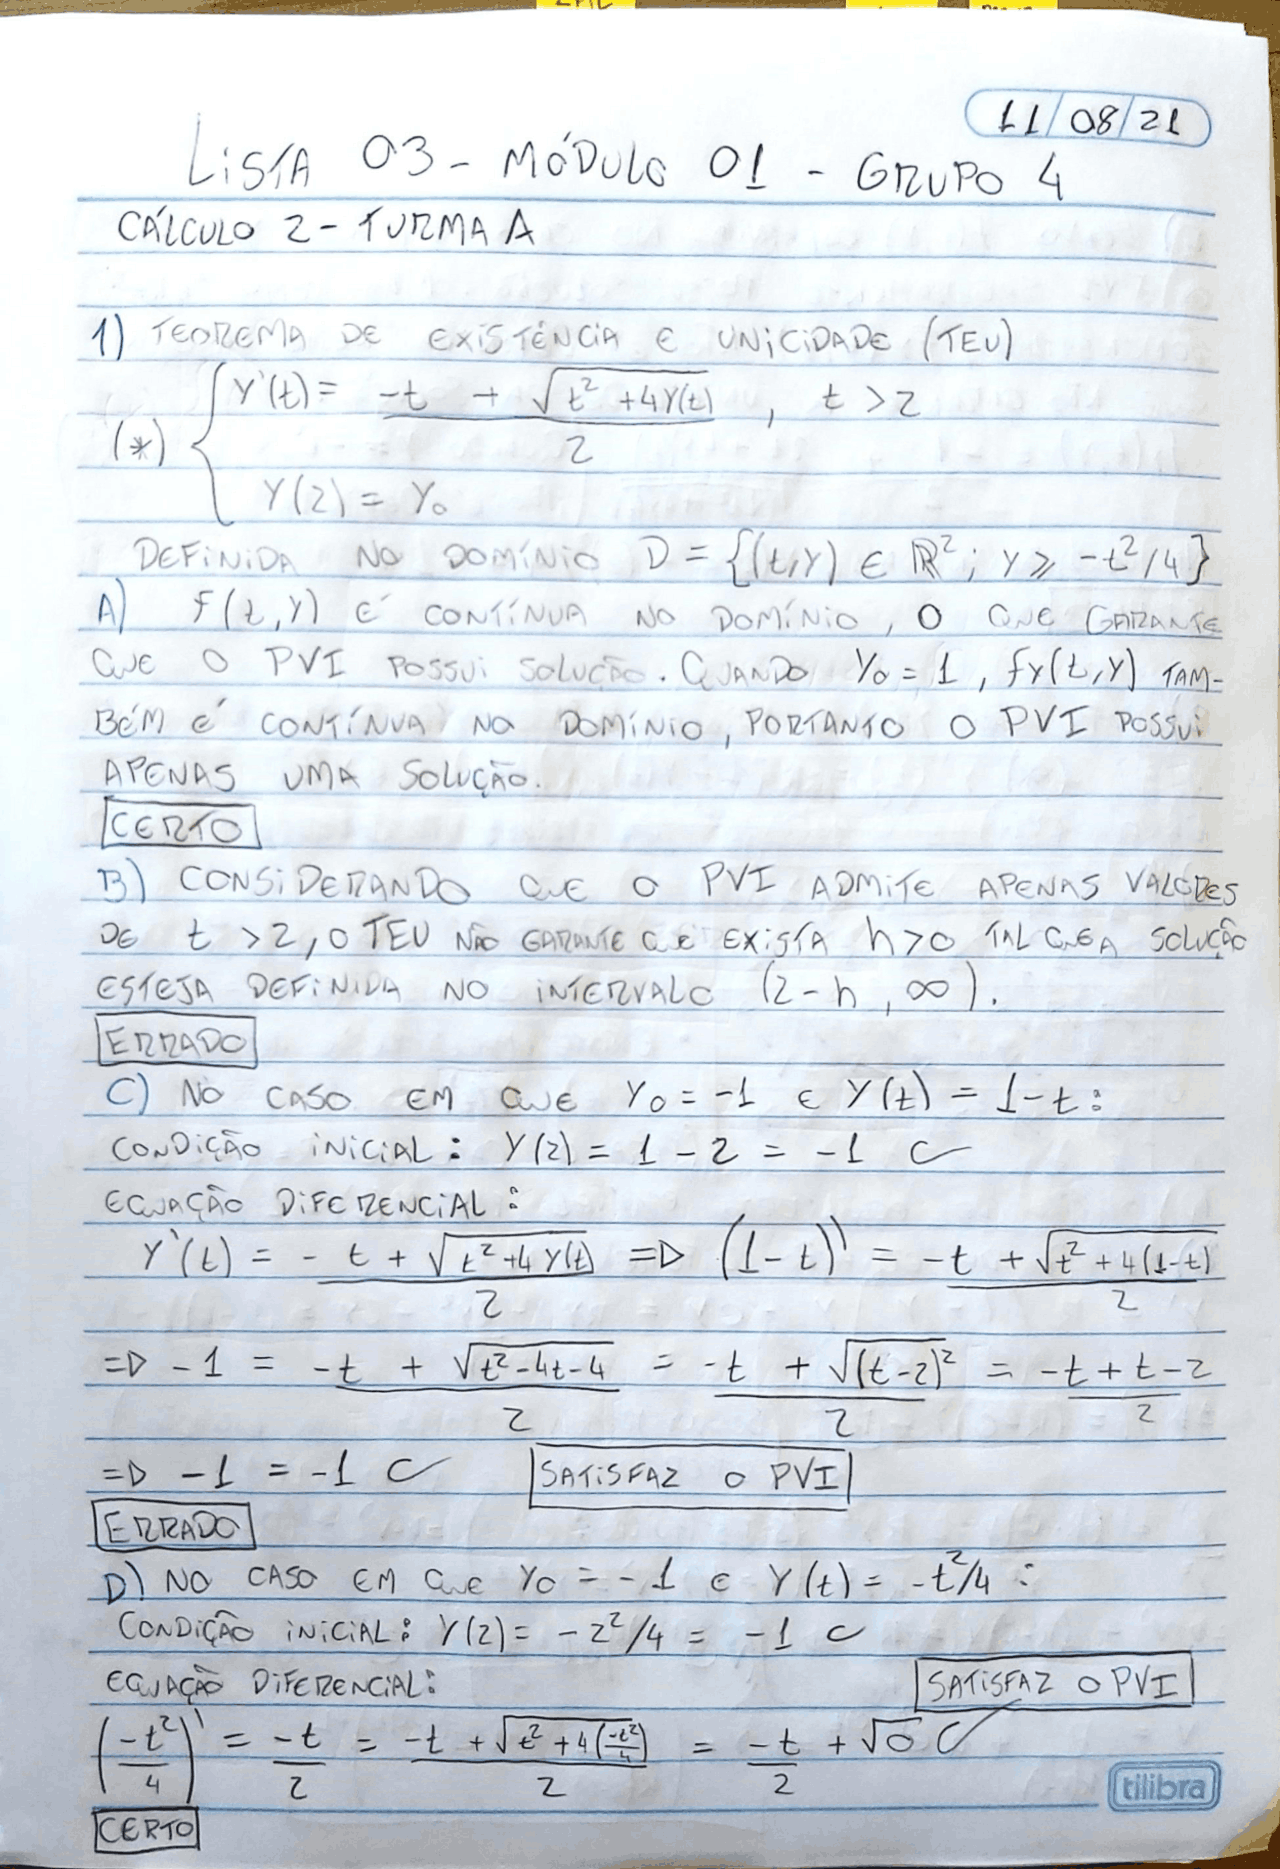 11/08/21
LISTA 03 - MÓDULO 01 - GRUPO 4
CÁLCULO 2 - TURMA A
1) TEOREMA DE EXISTÊNCIA E UNICIDADE (TEU)
(*) { Y'(t) = (-t + √(t² + 4Y(t)))/2 , t > 2
Y(2) = Y₀
DEFINIDA NO DOMÍNIO D = {(t,Y) ∈ ℝ²; Y ≥ -t²/4}
A) f(t,Y) É CONTÍNUA NO DOMÍNIO, O QUE GARANTE
QUE O PVI POSSUI SOLUÇÃO. QUANDO Y₀ = 1, fy(t,Y) TAM-
BÉM É CONTÍNUA NO DOMÍNIO, PORTANTO O PVI POSSUI
APENAS UMA SOLUÇÃO.
CERTO
B) CONSIDERANDO QUE O PVI ADMITE APENAS VALORES
DE t > 2, O TEU NÃO GARANTE QUE EXISTA h>0 TAL QUE A SOLUÇÃO
ESTEJA DEFINIDA NO INTERVALO (2-h, ∞).
ERRADO
C) NO CASO EM QUE Y₀ = -1 E Y(t) = 1-t:
CONDIÇÃO INICIAL: Y(2) = 1 - 2 = -1 ✓
EQUAÇÃO DIFERENCIAL:
Y'(t) = (-t + √(t²+4Y(t)))/2 => (1-t)' = (-t + √(t² + 4(1-t)))/2
=> -1 = (-t + √(t²-4t-4))/2 = (-t + √((t-2)²))/2 = (-t+t-2)/2
=> -1 = -1 ✓ SATISFAZ O PVI
ERRADO
D) NO CASO EM QUE Y₀ = -1 E Y(t) = -t²/4:
CONDIÇÃO INICIAL: Y(2) = -2²/4 = -1 ✓
EQUAÇÃO DIFERENCIAL: SATISFAZ O PVI
(-t²/4)' = -t/2 = (-t + √(t² + 4(-t²/4)))/2 = -t/2 + √0 ✓
tilibra
CERTO